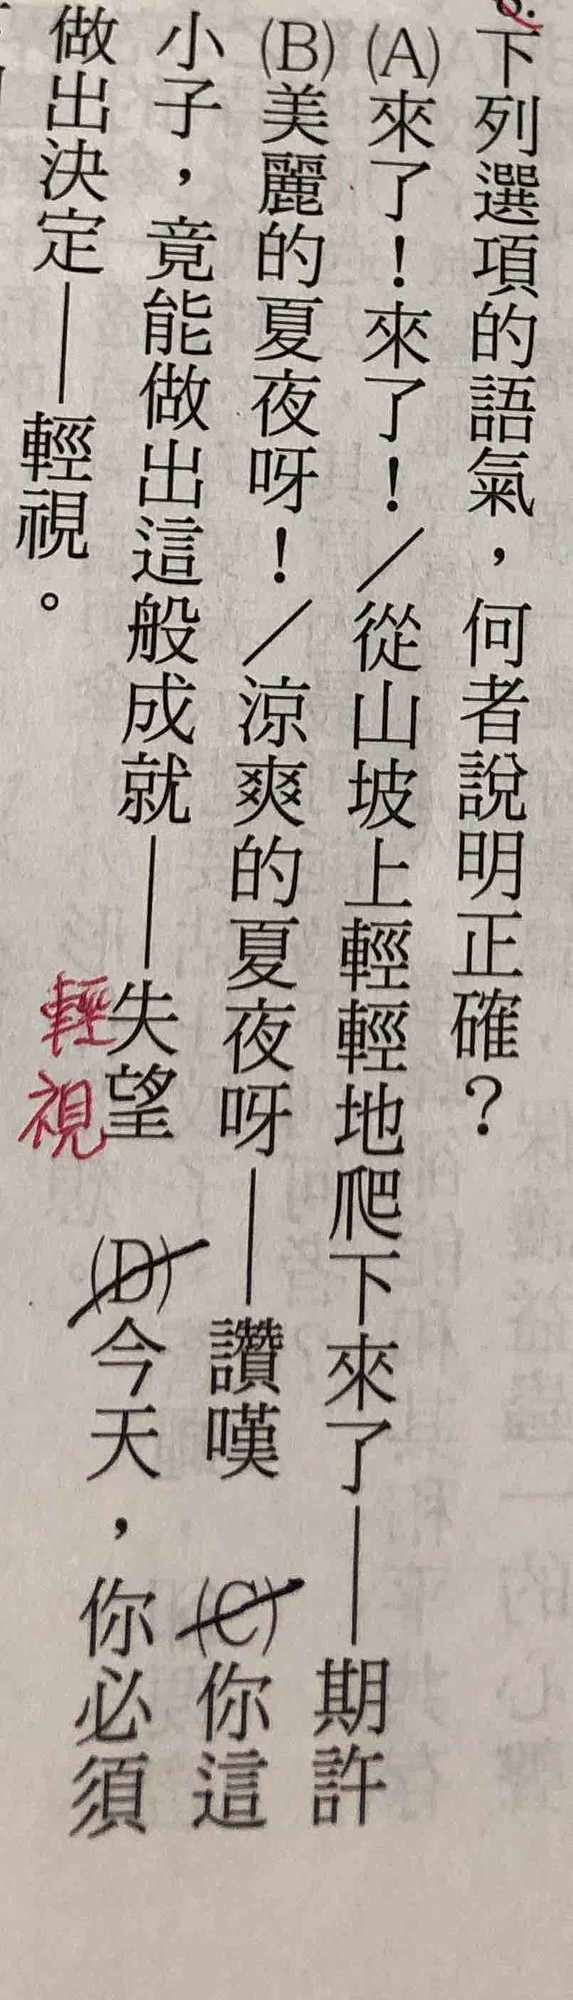 下列選項的語氣，何者說明正確？
(A)來了！來了！／從山坡上輕輕地爬下來了——期許
(B)美麗的夏夜呀！／涼爽的夏夜呀——讚嘆 (C)你這
小子，竟能做出這般成就——失望 (D)今天，你必須
輕視
做出決定——輕視。